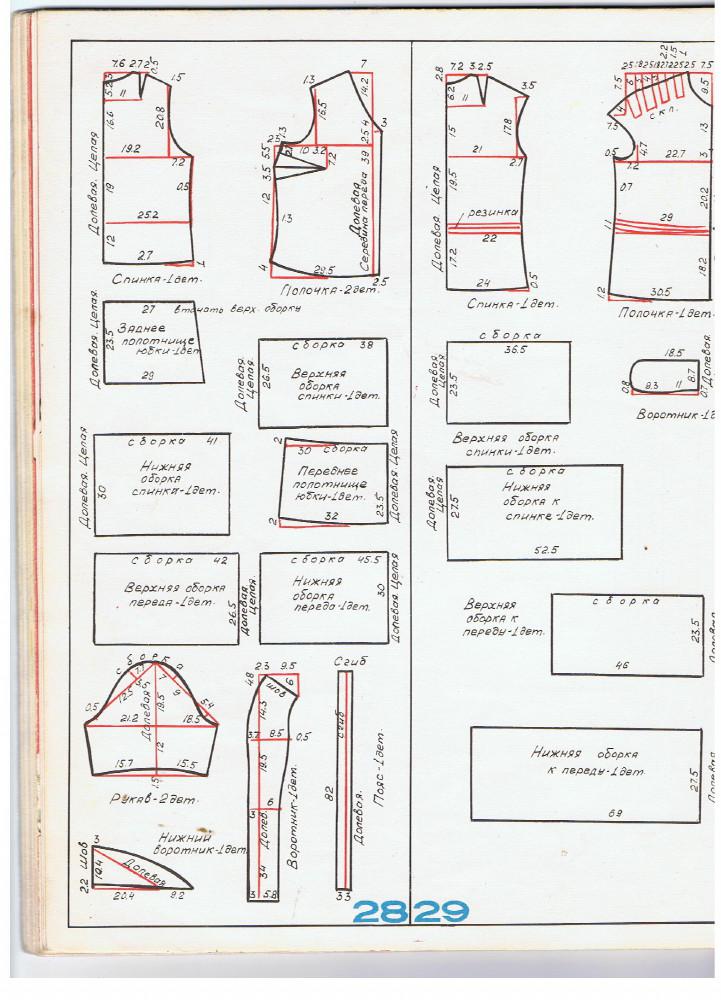 7.6 2.7 2 0.5
5.2 2.3
11
1.5
16.6
20.8
Долевая. Целая
19.2
7.2
19
0.5
25.2
12
2.7
1
Спинка-1дет.
7
1.3
14.2
16.5
3
4
2.5
2.3
1.3
5.5
10 3.2
7.2
39
3.5
12
1.3
Долевая
Середина переда
4
29.5
2.5
Полочка-2дет.
27 втачать верх. оборку
Долевая. Целая.
23.5
Заднее
полотнище
юбки-1дет
29
сборка 38
26.5
Долевая
Целая.
Верхняя
оборка
спинки-1дет.
сборка 41
30
Долевая. Целая
Нижняя
оборка
спинки-1дет.
2
30 сборка
Переднее
полотнище
юбки-1дет.
23.5
32
2
Долевая. Целая
сборка 42
Верхняя оборка
переда-1дет.
26.5
Долевая
Целая.
сборка 45.5
Нижняя
оборка
переда-1дет.
30
Долевая. Целая
сборка
0.5
12.5
5
7
9
5.4
Долевая
19.5
21.2
18.5
12
15.7
15.5
1.5
Рукав-2дет.
2.3 9.5
4.8
шов
6
14.3
3.7
8.5
0.5
19.5
6
3
Долев.
34
3 5.8
Воротник-1дет.
Сгиб
сгиб
82
Долевая.
3.3
Пояс-1дет.
Шов
3
10.4
2.2
Долевая
20.4 9.2
Нижний
воротник-1дет.
28 29
7.2 3.2 2.5
2.8
6.2
11
3.5
15
17.8
21
2.7
19.5
Долевая Целая
резинка
22
17.2
24
0.5
Спинка-1дет.
2.5 1.8 2.5 1.8 2.7 1.2 2.5 2.5 7.5
2.2
1.5
1
7.5
6
4
9.5
скл.
7.5
13
0.5
4.7
7.2
22.7
3
0.7
20.2
29
11
18.2
1.2
30.5
Полочка-1дет.
сборка
36.5
Долевая
Целая
23.5
Верхняя оборка
спинки-1дет.
18.5
8.7
0.8
9.3 11
0.7
Воротник-1
сборка
Долевая.
Целая
27.5
Нижняя
оборка к
спинке-1дет.
52.5
Верхняя
оборка к
переду-1дет.
сборка
23.5
46
Нижняя оборка
к переду-1дет.
27.5
69